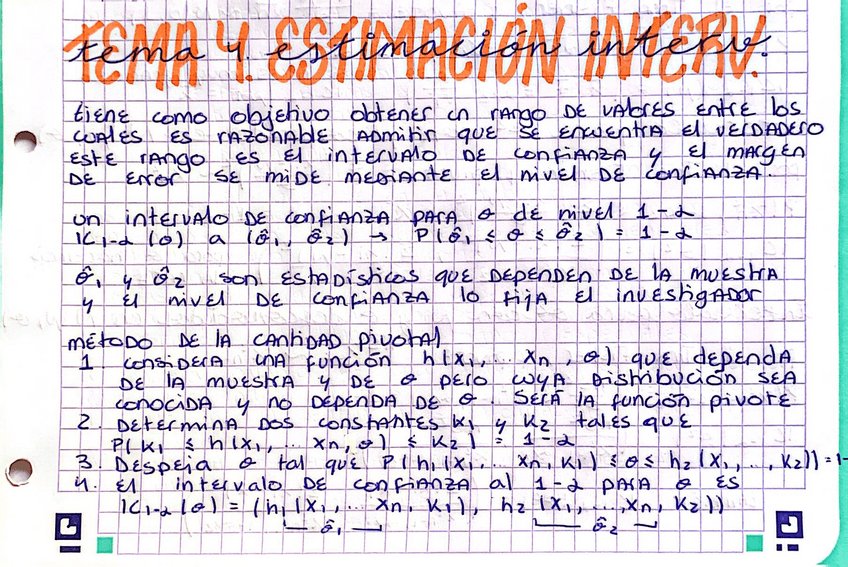 TEMA 4. ESTIMACIÓN INTERV.
tema 4. estimación interv.
tiene como objetivo obtener un rango de valores entre los
cuales es razonable admitir que se encuentra el verdadero
este rango es el intervalo de confianza y el margen
de error se mide mediante el nivel de confianza.
un intervalo de confianza para θ de nivel 1-α
IC₁₋α (θ) a (θ̂₁, θ̂₂) → P(θ̂₁ ≤ θ ≤ θ̂₂) = 1-α
θ̂₁ y θ̂₂ son estadísticos que dependen de la muestra
y el nivel de confianza lo fija el investigador
método de la cantidad pivotal
1. considera una función h(x₁,... xn, θ) que dependa
de la muestra y de θ pero cuya distribución sea
conocida y no dependa de θ. Será la función pivote
2. Determina dos constantes K₁ y K₂ tales que
P(K₁ ≤ h(x₁,... xn, θ) ≤ K₂) = 1-α
3. Despeja θ tal que P(h₁(x₁,... xn, K₁) ≤ θ ≤ h₂(x₁,..., K₂)) = 1-
4. El intervalo de confianza al 1-α para θ es
IC₁₋α(θ) = (h₁(x₁,... xn, K₁), h₂(x₁,...,xn, K₂))
θ̂₁ θ̂₂